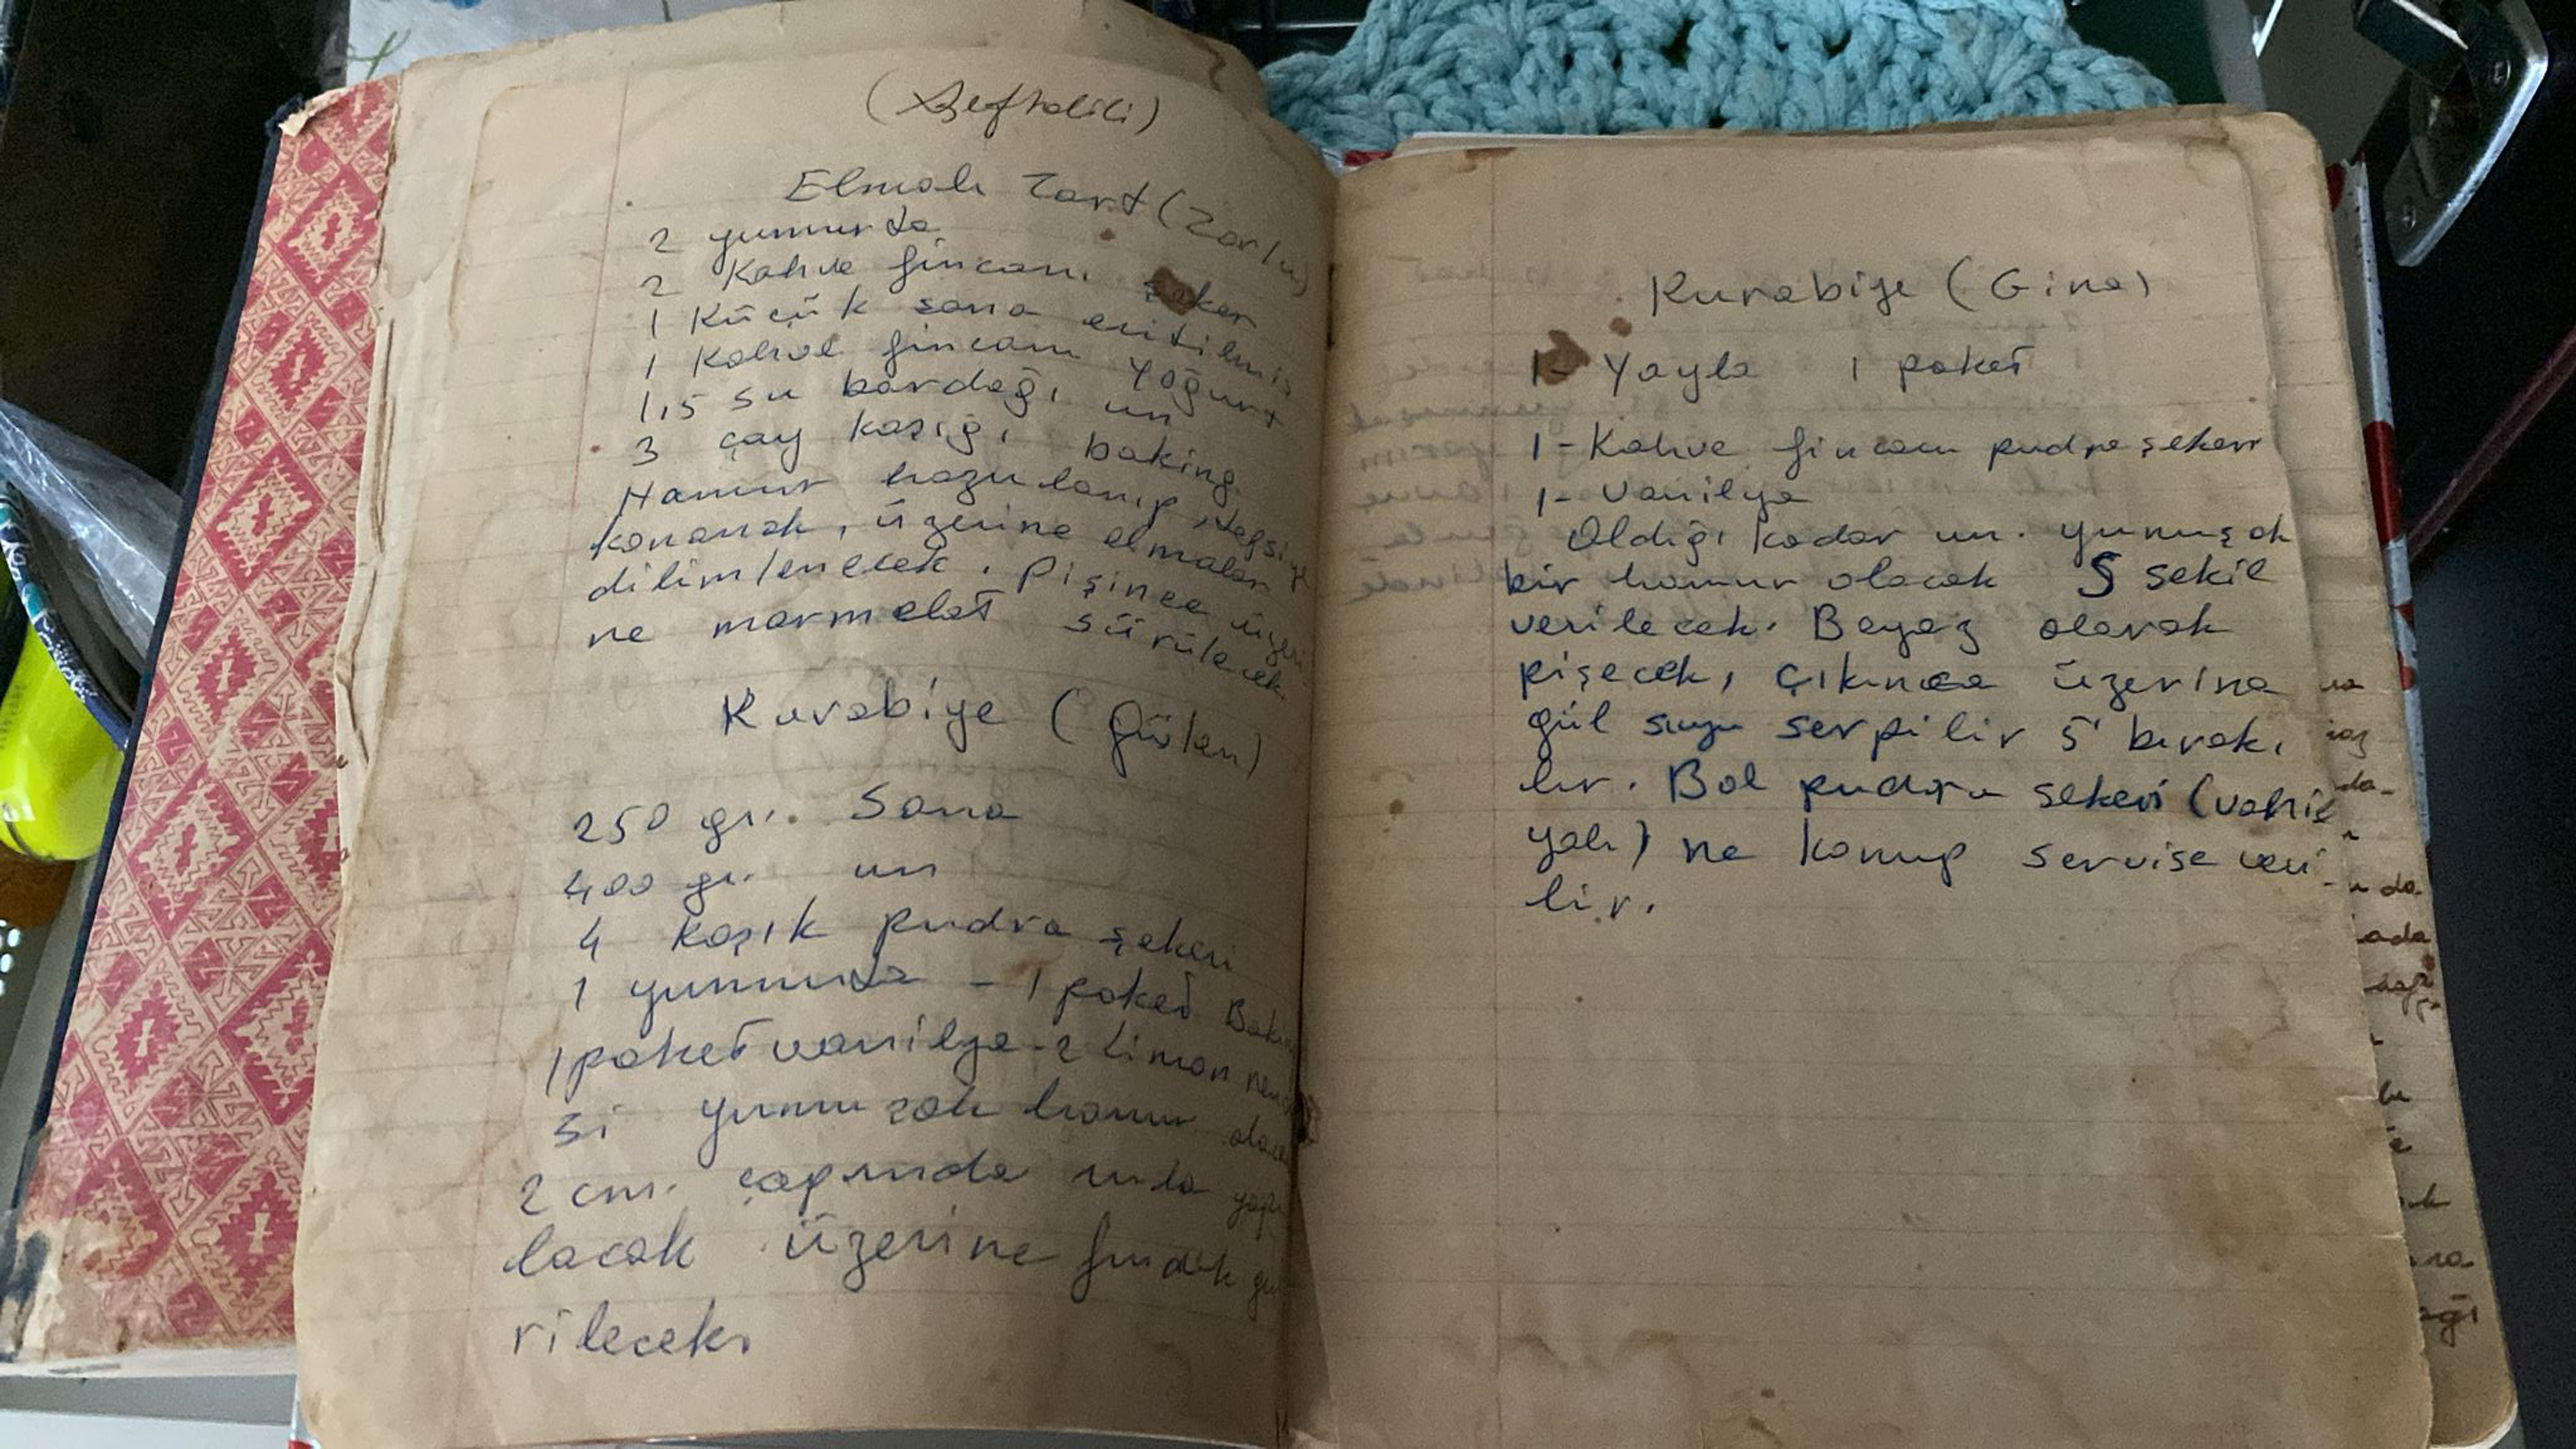 (Şeftalili)
Elmalı Tart (Zarlu)
2 yumurta
2 Kahve fincanı şeker
1 Küçük sana eritilmiş
1 Kahve fincanı Yoğurt
1,5 su bardağı un
3 çay kaşığı baking
Hamur hazırlanıp, tepsiye
konarak, üzerine elmalar
dilimlenecek. Pişince üzeri-
ne marmelat sürülecek.
Kurabiye (Gülen)
250 gr. Sana
400 gr. un
4 kaşık pudra şekeri
1 yumurta - 1 paket Bakin
1 paket vanilya - 2 Limon
si yumuşak hamur olacak
2 cm. çapında yapı
lacak üzerine fındık
rilecek.
Kurabiye (Gina)
1- Yayla 1 paket
1- Kahve fincanı pudra şekeri
1- Vanilya
Aldığı kadar un. yumuşak
bir hamur olacak S şekil
verilecek. Beyaz olarak
pişecek, çıkınca üzerine
gül suyu serpilir 5' bırakı
lır. Bol pudra şekeri (vanil
yalı) ne konup servise veri
lir.